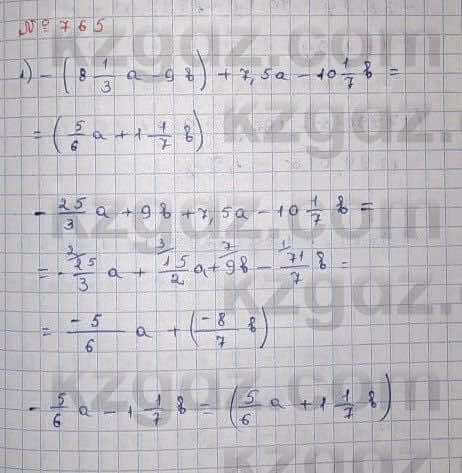 № 765
1) -(8 1/3 a - 9b) + 7,5a - 10 1/7 b =
= (5/6 a + 1 1/7 b)
- 25/3 a + 9b + 7,5a - 10 1/7 b =
= - 25/3 a + 15/2 a + 9b - 71/7 b =
= -5/6 a + (-8/7 b)
- 5/6 a - 1 1/7 b = (5/6 a + 1 1/7 b)
kzgdz.com
kzgdz.
kzgdz.com
kzgdz.
kzgdz.com
kzgdz.
kzgdz.com